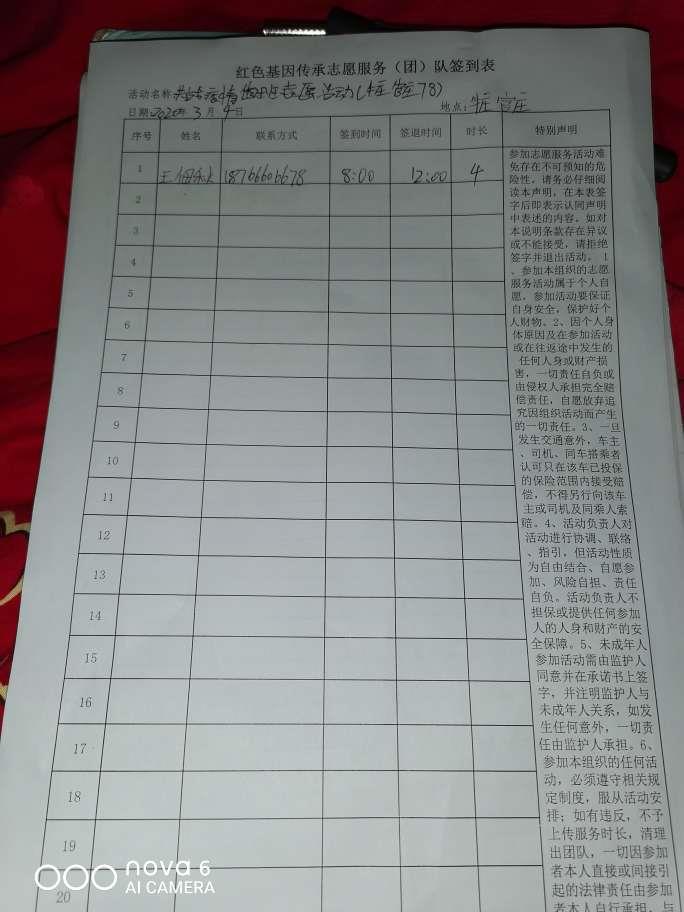 红色基因传承志愿服务（团）队签到表
活动名称 志愿活动
日期 2020年 3 月 4 日 地点：
序号 姓名 联系方式 签到时间 签退时间 时长 特别声明
1 王 8:00 12:00 4
2
3
4
5
6
7
8
9
10
11
12
13
14
15
16
17
18
19
20
参加志愿服务活动难
免存在不可预知的危
险性，请务必仔细阅
读本声明，在本表签
字后即表示认同声明
中表述的内容。如对
本说明条款存在异议
或不能接受，请拒绝
签字并退出活动。1
、参加本组织的志愿
服务活动属于个人自
愿，参加活动要保证
自身安全，保护好个
人财物。2、因个人身
体原因及在参加活动
或在往返途中发生的
任何人身或财产损
害，一切责任自负或
由侵权人承担完全赔
偿责任，自愿放弃追
究因组织活动而产生
的一切责任。3、一旦
发生交通意外，车主
、司机、同车搭乘者
认可只在该车已投保
的保险范围内接受赔
偿，不得另行向该车
主或司机及同乘人索
赔。4、活动负责人对
活动进行协调、联络
、指引，但活动性质
为自由结合、自愿参
加、风险自担、责任
自负。活动负责人不
担保或提供任何参加
人的人身和财产的安
全保障。5、未成年人
参加活动需由监护人
同意并在承诺书上签
字，并注明监护人与
未成年人关系，如发
生任何意外，一切责
任由监护人承担。6、
参加本组织的任何活
动，必须遵守相关规
定制度，服从活动安
排；如有违反，不予
上传服务时长，清理
出团队，一切因参加
者本人直接或间接引
起的法律责任由参加
者本人自行承担，与
nova 6
AI CAMERA